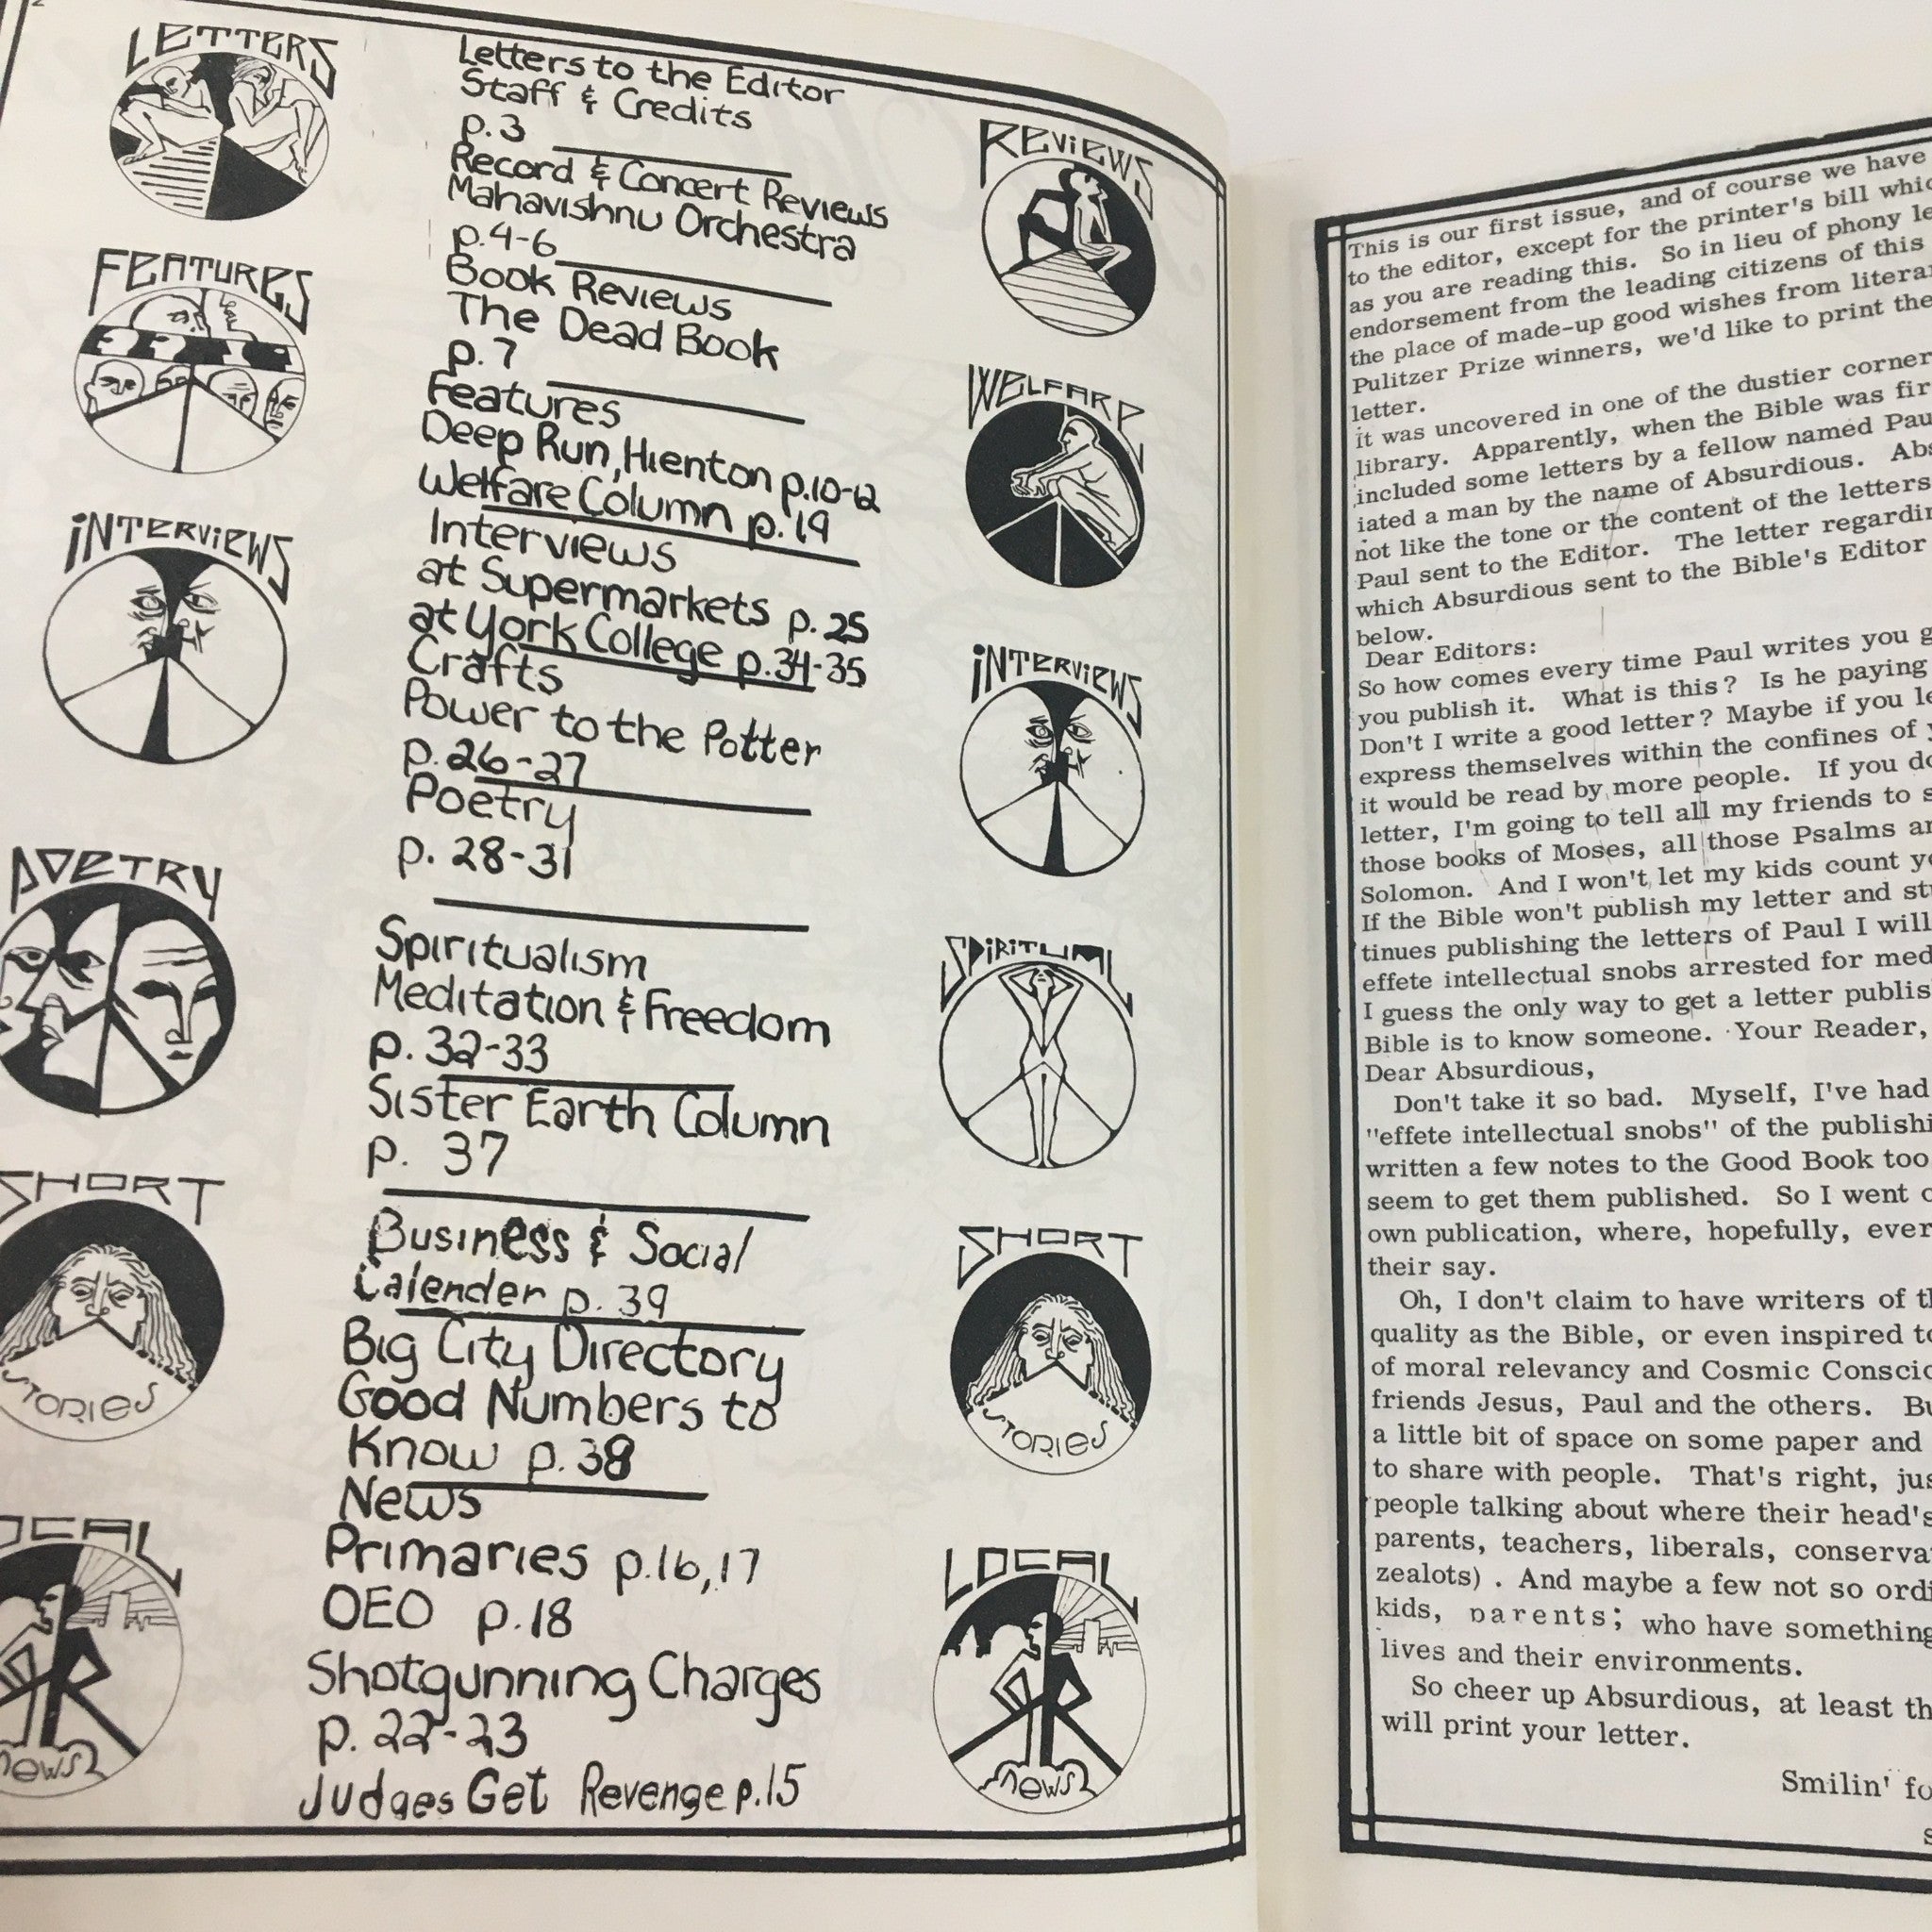 2
LETTERS
FEATURES
INTERVIEWS
POETRY
SHORT
STORIES
LOCAL
NEWS
Letters to the Editor
Staff & Credits
p.3
Record & Concert Reviews
Mahavishnu Orchestra
p.4-6
Book Reviews
The Dead Book
p.7
Features
Deep Run, Hienton p.10-12
Welfare Column p.19
Interviews
at Supermarkets p.25
at York College p.34-35
Crafts
Power to the Potter
p.26-27
Poetry
p. 28-31
Spiritualism
Meditation & Freedom
p. 32-33
Sister Earth Column
p. 37
Business & Social
Calender p. 39
Big City Directory
Good Numbers to
Know p.38
News
Primaries p.16,17
OEO p.18
Shotgunning Charges
p. 22-23
Judges Get Revenge p.15
REVIEWS
WELFARE
INTERVIEWS
SPIRITUAL
SHORT
STORIES
LOCAL
NEWS
This is our first issue, and of course we have
to the editor, except for the printer's bill whic
as you are reading this. So in lieu of phony le
endorsement from the leading citizens of this
the place of made-up good wishes from litera
Pulitzer Prize winners, we'd like to print the
letter.
it was uncovered in one of the dustier corner
library. Apparently, when the Bible was fir
included some letters by a fellow named Pau
iated a man by the name of Absurdious. Abs
not like the tone or the content of the letters
Paul sent to the Editor. The letter regardin
which Absurdious sent to the Bible's Editor
below.
Dear Editors:
So how comes every time Paul writes you
you publish it. What is this? Is he paying
Don't I write a good letter? Maybe if you le
express themselves within the confines of
it would be read by more people. If you do
letter, I'm going to tell all my friends to s
those books of Moses, all those Psalms an
Solomon. And I won't let my kids count yo
If the Bible won't publish my letter and st
tinues publishing the letters of Paul I will
effete intellectual snobs arrested for med
I guess the only way to get a letter publis
Bible is to know someone. Your Reader,
Dear Absurdious,
Don't take it so bad. Myself, I've had
"effete intellectual snobs" of the publishi
written a few notes to the Good Book too
seem to get them published. So I went o
own publication, where, hopefully, ever
their say.
Oh, I don't claim to have writers of th
quality as the Bible, or even inspired to
of moral relevancy and Cosmic Conscio
friends Jesus, Paul and the others. Bu
a little bit of space on some paper and
to share with people. That's right, jus
people talking about where their head's
parents, teachers, liberals, conserva
zealots) . And maybe a few not so ordi
kids, parents; who have something
lives and their environments.
So cheer up Absurdious, at least th
will print your letter.
Smilin' fo